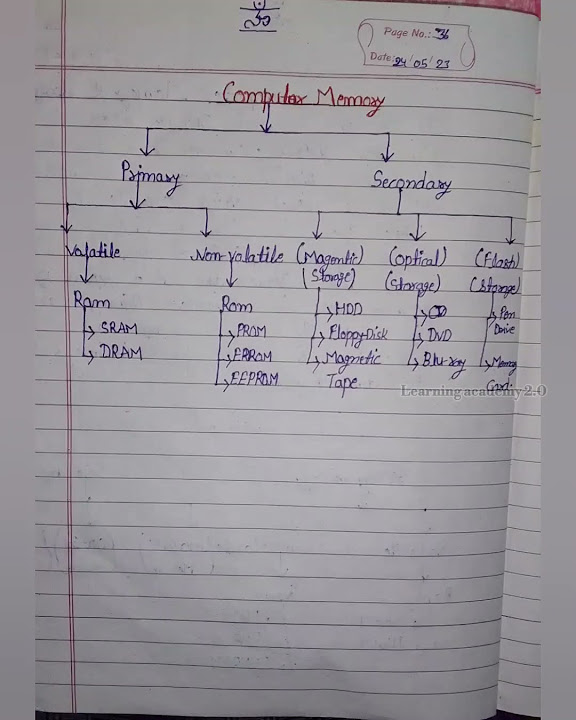 Page No.: 36
Date: 24/05/23
Computer Memory
Primary
Secondary
Volatile
Non-volatile
(Magentic)
(Storage)
(Optical)
(Storage)
(Flash)
(Storage)
Ram
SRAM
DRAM
Rom
PROM
EPROM
EEPROM
HDD
Floppy Disk
Magnetic
Tape
CD
DVD
Blu-ray
Pen
Drive
Memory
Card.
Learning academy 2.0